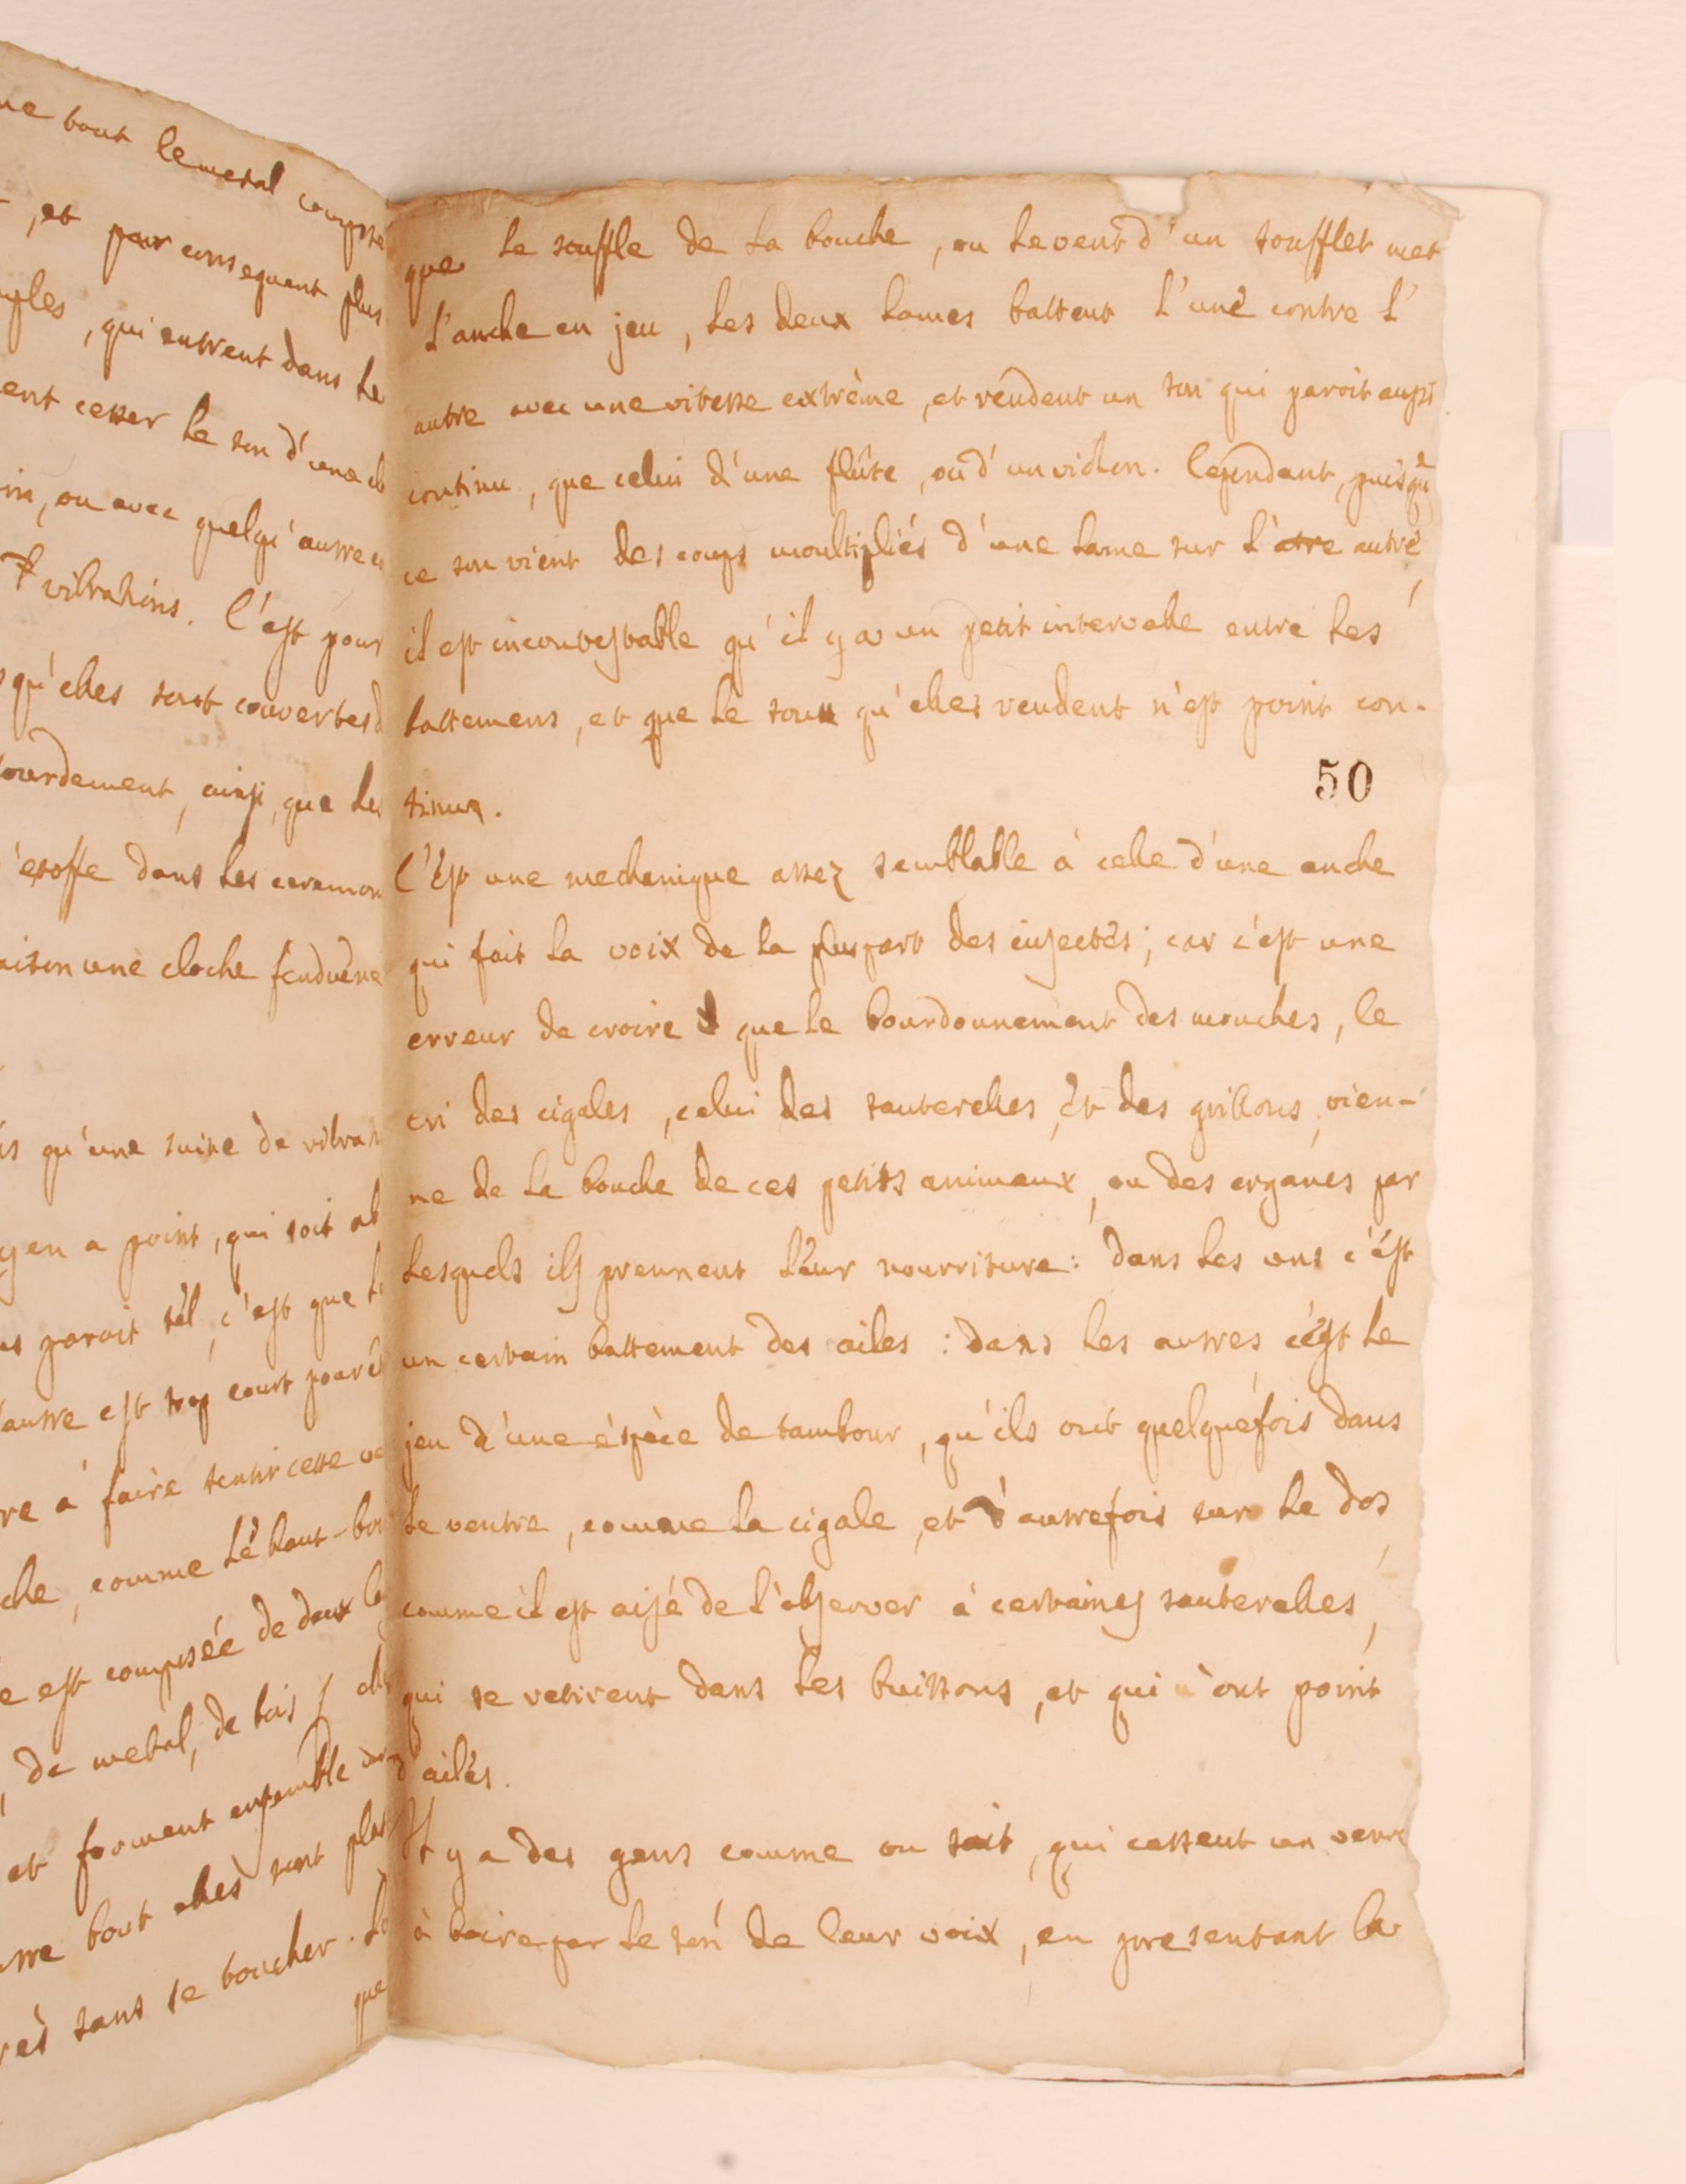 ne bout le metal compose
, et par consequent plus
mples, qui entrent dans le
ent cesser le son d'une cl
in, ou avec quelqu'autre co
vibrations. C'est pour
squ'elles sont couvertes d
sourdement, ainsi, que les
d'etoffe dans les ceremon
aison une cloche fendue ne
is qu'une suite de vibrat
y en a point, qui soit ab
us paroit tel, c'est que l
l'autre est trop court pour êt
re à faire sentir cette ve
che, comme le haut-boi
e est composée de deux la
, de metal, de bois, elle
et forment ensemble un
utre bout elles sont plat
rés sans se boucher. Lo
que
que le souffle de la bouche, ou le vent d'un soufflet met
l'anche en jeu, les deux lames battent l'une contre l'
autre avec une vitesse extrème, et rendent un son qui paroit aussi
continu, que celui d'une flûte, ou d'un violon. Cependant, puisque
ce son vient des coups moultipliés d'une lame sur l'atre autre,
il est incontestable qu'il y a un petit intervale entre les
battemens, et que le son qu'elles rendent n'est point con-
tinue.
50
C'est une mechanique assez semblable à celle d'une anche
qui fait la voix de la pluspart des insectes; car c'est une
erreur de croire que le bourdonnement des mouches, le
cri des cigales, celui des sauterelles, et des grillons, vien-
ne de la bouche de ces petits animaux, ou des organes par
lesquels ils prennent leur nourriture: dans les uns c'est
un certain battement des ailes: dans les autres c'est le
jeu d'une éspèce de tambour, qu'ils ont quelquefois dans
le ventre, comme la cigale, et d'autrefois sur le dos,
comme il est aisé de l'observer à certaines sauterelles,
qui se retirent dans les buissons, et qui n'ont point
d'ailes.
Il y a des gens comme on sait, qui cassent un verre
à boire par le son de leur voix, en presentant la